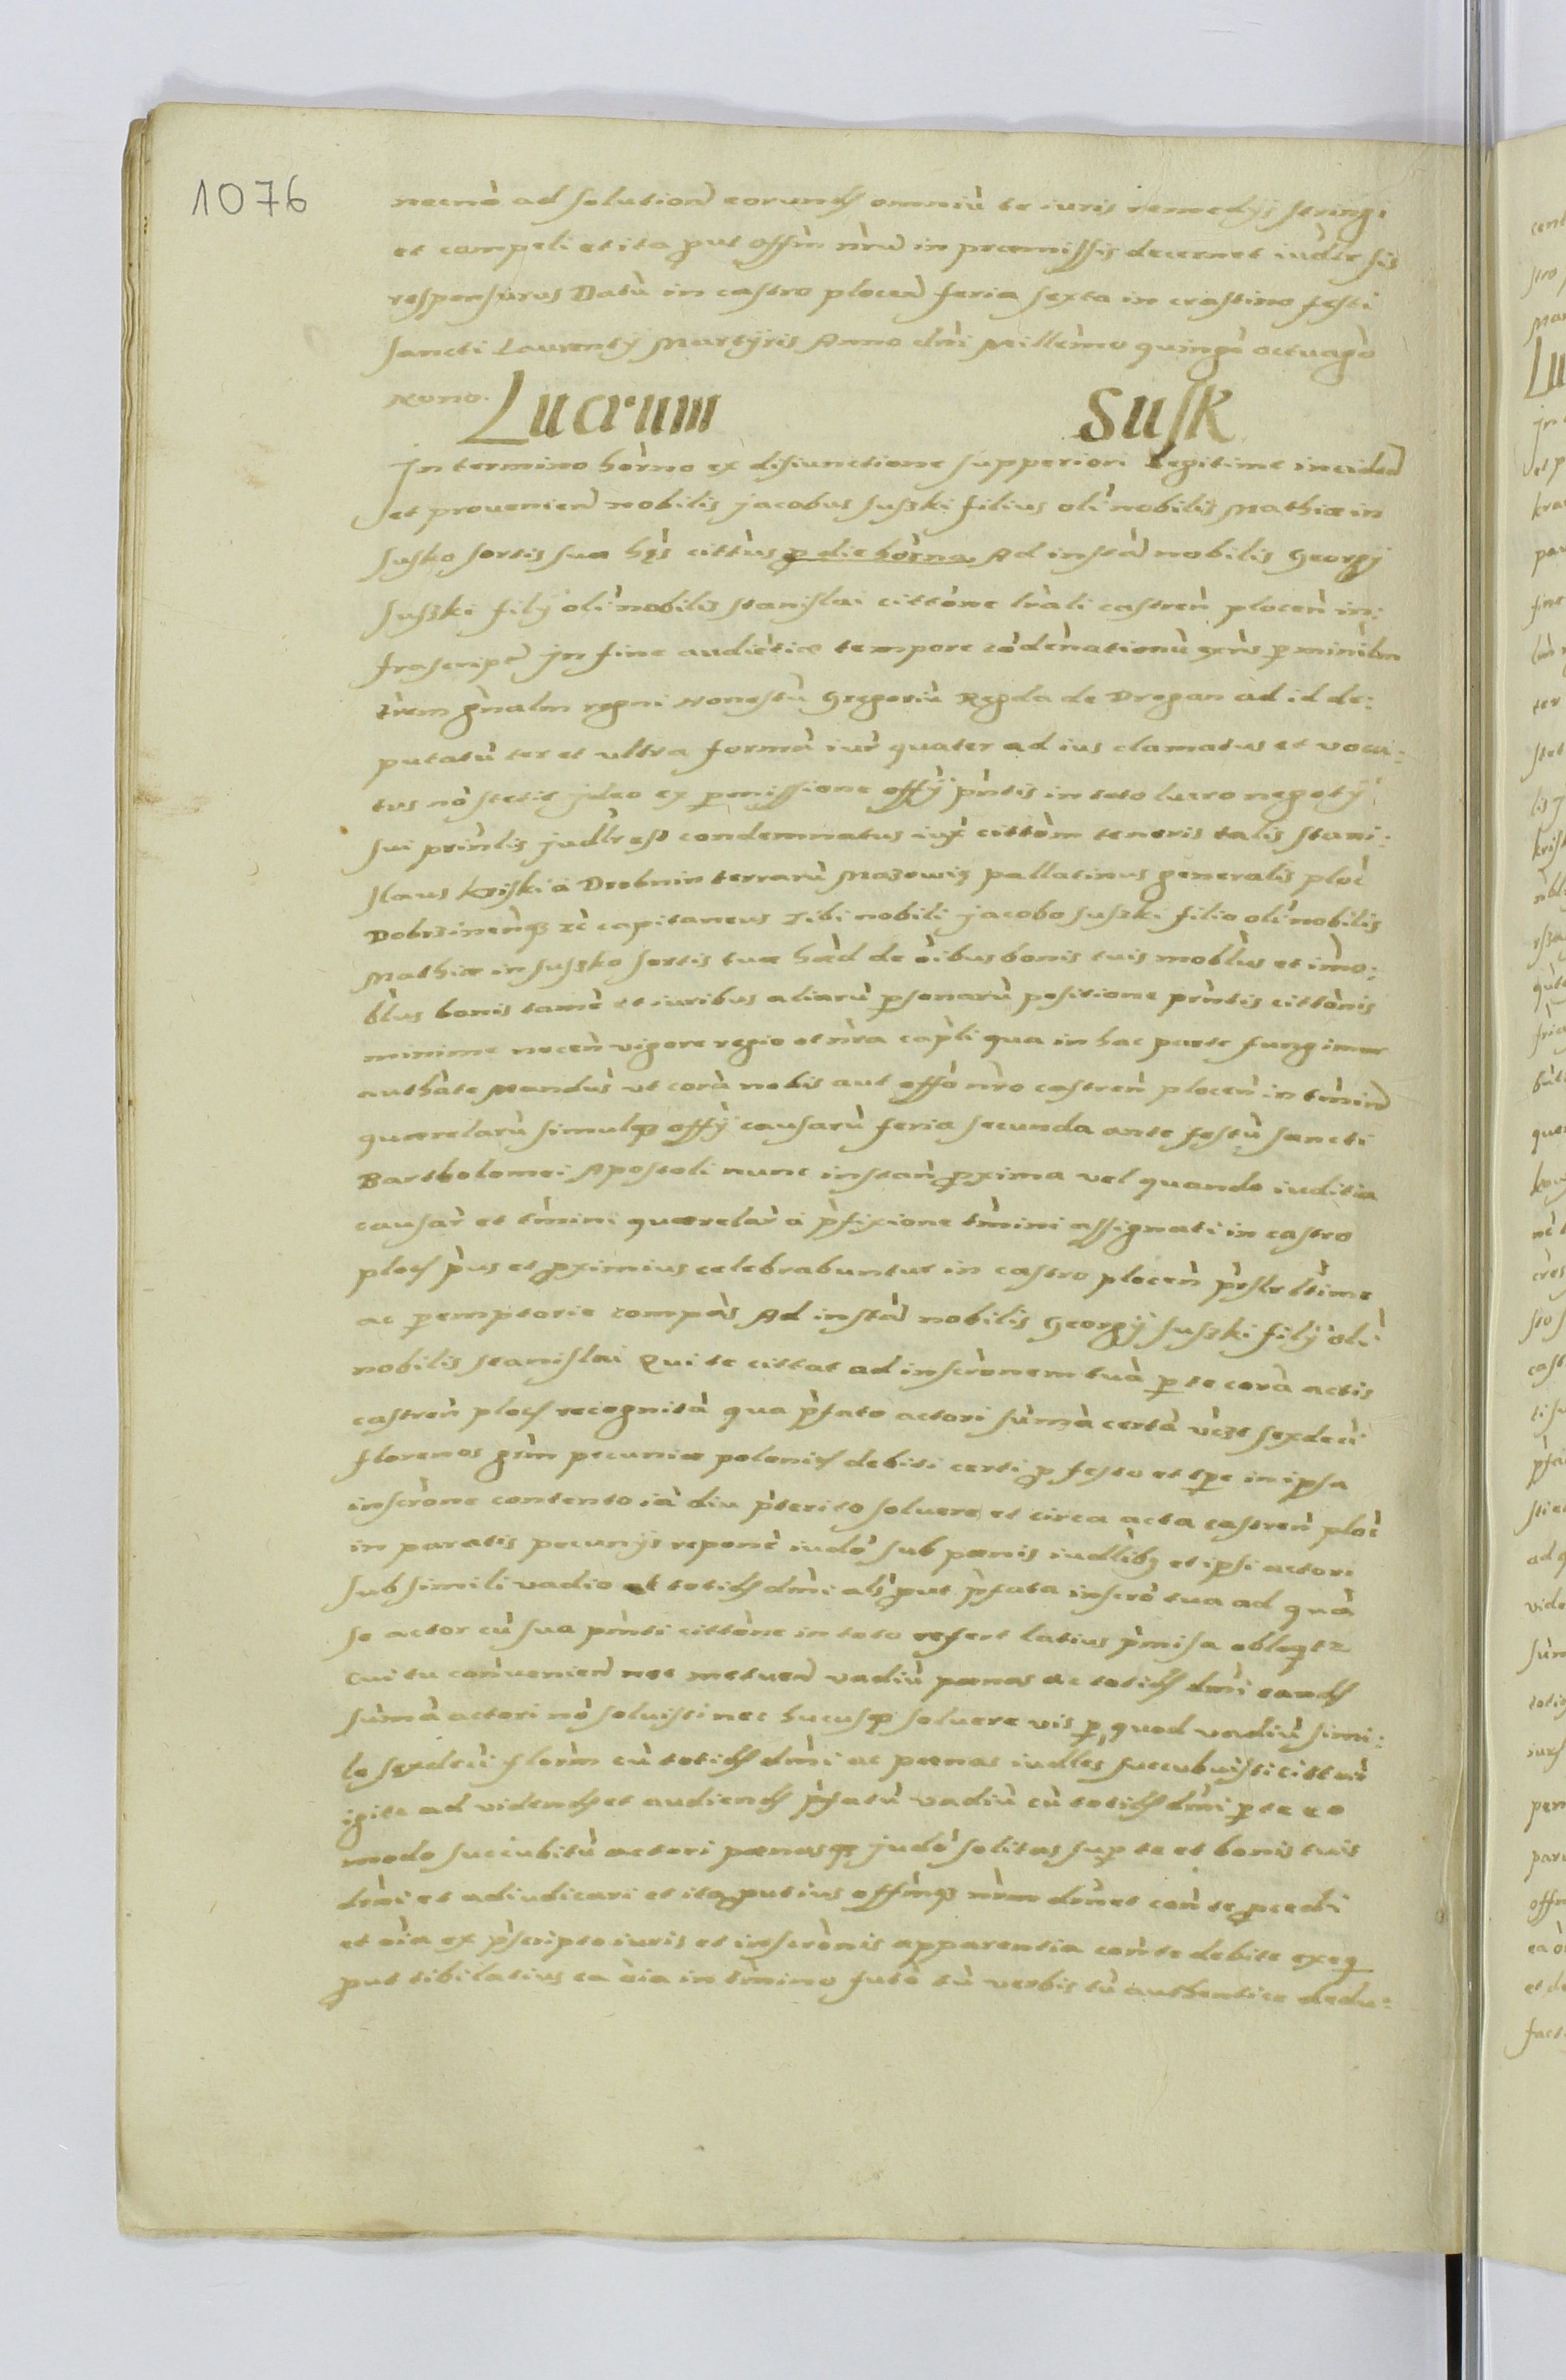 1076
necnō ad solution̄ eorund̄ omniū te iuris remedijs stringi
et compeli et ita put offm̄ nr̄m in praemissis decernet iudlr sis
responsurus Datū in castro plocen̄ feria sexta in crastino festi
sancti Laurentij Martijris Anno dn̄i Millēmo quingō octuagō
Nono.
Lucrum Susk
In termino hōrno ex disiunctione supperiori Legitime inciden̄
et prouenien̄ nobilis jacobus suski filius oli nobilis Mathiæ in
susko sortis suæ hęs cittūs p die hōrna Ad instā nobilis Georgij
suszki filij oli nobilis stanislai cittōne lr̄ali castren̄ plocen̄ in:
frascript̄ In fine audiētiæ tempore cōdēnationū
gn̄alm regni Honestū Gregoriū Regda de Drogan ad id de:
putatū ter et ultra formā iur̄ quater ad ius clamatus et voca:
tus nō stetit jdeo ex pmissione offij pn̄tis in toto lucro negotij
sui prin̄lis judlr est condemnatus iux cittōm teneris talis stani:
slaus kriski a Drobnin terrarū Mazowię pallatinus generalis ploc̄
Dobrzinen̄q; rc̄ capitaneus Tibi nobili jacobo suszki filio oli nobilis
Mathiæ in suszko sortis tuæ hæd de ōibus bonis tuis moblūs et imo:
blūs bonis tamē et iuribus aliarū psonarū positione prn̄tis cittōnis
minime nocen̄ vigore regio et nr̄a capli qua in hac parte fungimur
authāte Mandūs ut corā nobis aut offō nr̄o castren̄ plocen̄ in tm̄in
quærelarū simulq; offij causarū feria secunda ante festū sancti
Bartholomei Apostoli nunc instan̄ pxima vel quando iuditia
causar̄ et tm̄ini quærelar̄ a p̄fixione tm̄ini assignati in castro
ploc̄ p̄us et pximius celebrabuntur in castro plocen̄ p̄rslr ltime
ac pemptorie compās Ad instā nobilis Georgij suszki filij oli
nobilis stanislai Qui te cittat ad inscrōnem tuā p te corā actis
castren̄ ploc̄ recognitā qua p̄fato actori sūmā certā vīzt sexdeci
florenos grm̄ pecuniæ polonic̄ debiti certi p festo et tpe in ipsa
inscrōne contento iā diu p̄terito soluere et circa acta castren̄ ploc̄
in paratis pecunijs reponē iudō sub pænis iudlib; et ipsi actori
sub simili vadio et totid̄ dm̄i als put p̄fata inscrō tua ad quā
se actor cū sua pn̄ti cittōne in toto refert latius p̄misa obloqtz
cui tu conuenien̄ nec metuen̄ vadiū pænas ac totid̄ dm̄i eand̄
sūmā actori nō soluisti nec hucusq soluere vis p quod vadiū simi:
le sexdeci florm̄ cū totid̄ dm̄i ac pænas iudles succubuisti cittar̄
igitr ad vidend̄ et audiend̄ p̄fatū vadiū cū totid̄ dm̄i p te eo
modo succubitū actori pænasq; judō solitas sup te et bonis tuis
et adiudicari et ita put ius offm̄q; nr̄m dm̄et con te pcedi
et oīa ex p̄scripto iuris et inscrōnis apparentia con te debite exeq
put tibi latius ea oīa in tm̄ino futō tū verbis tū authentice dedu: